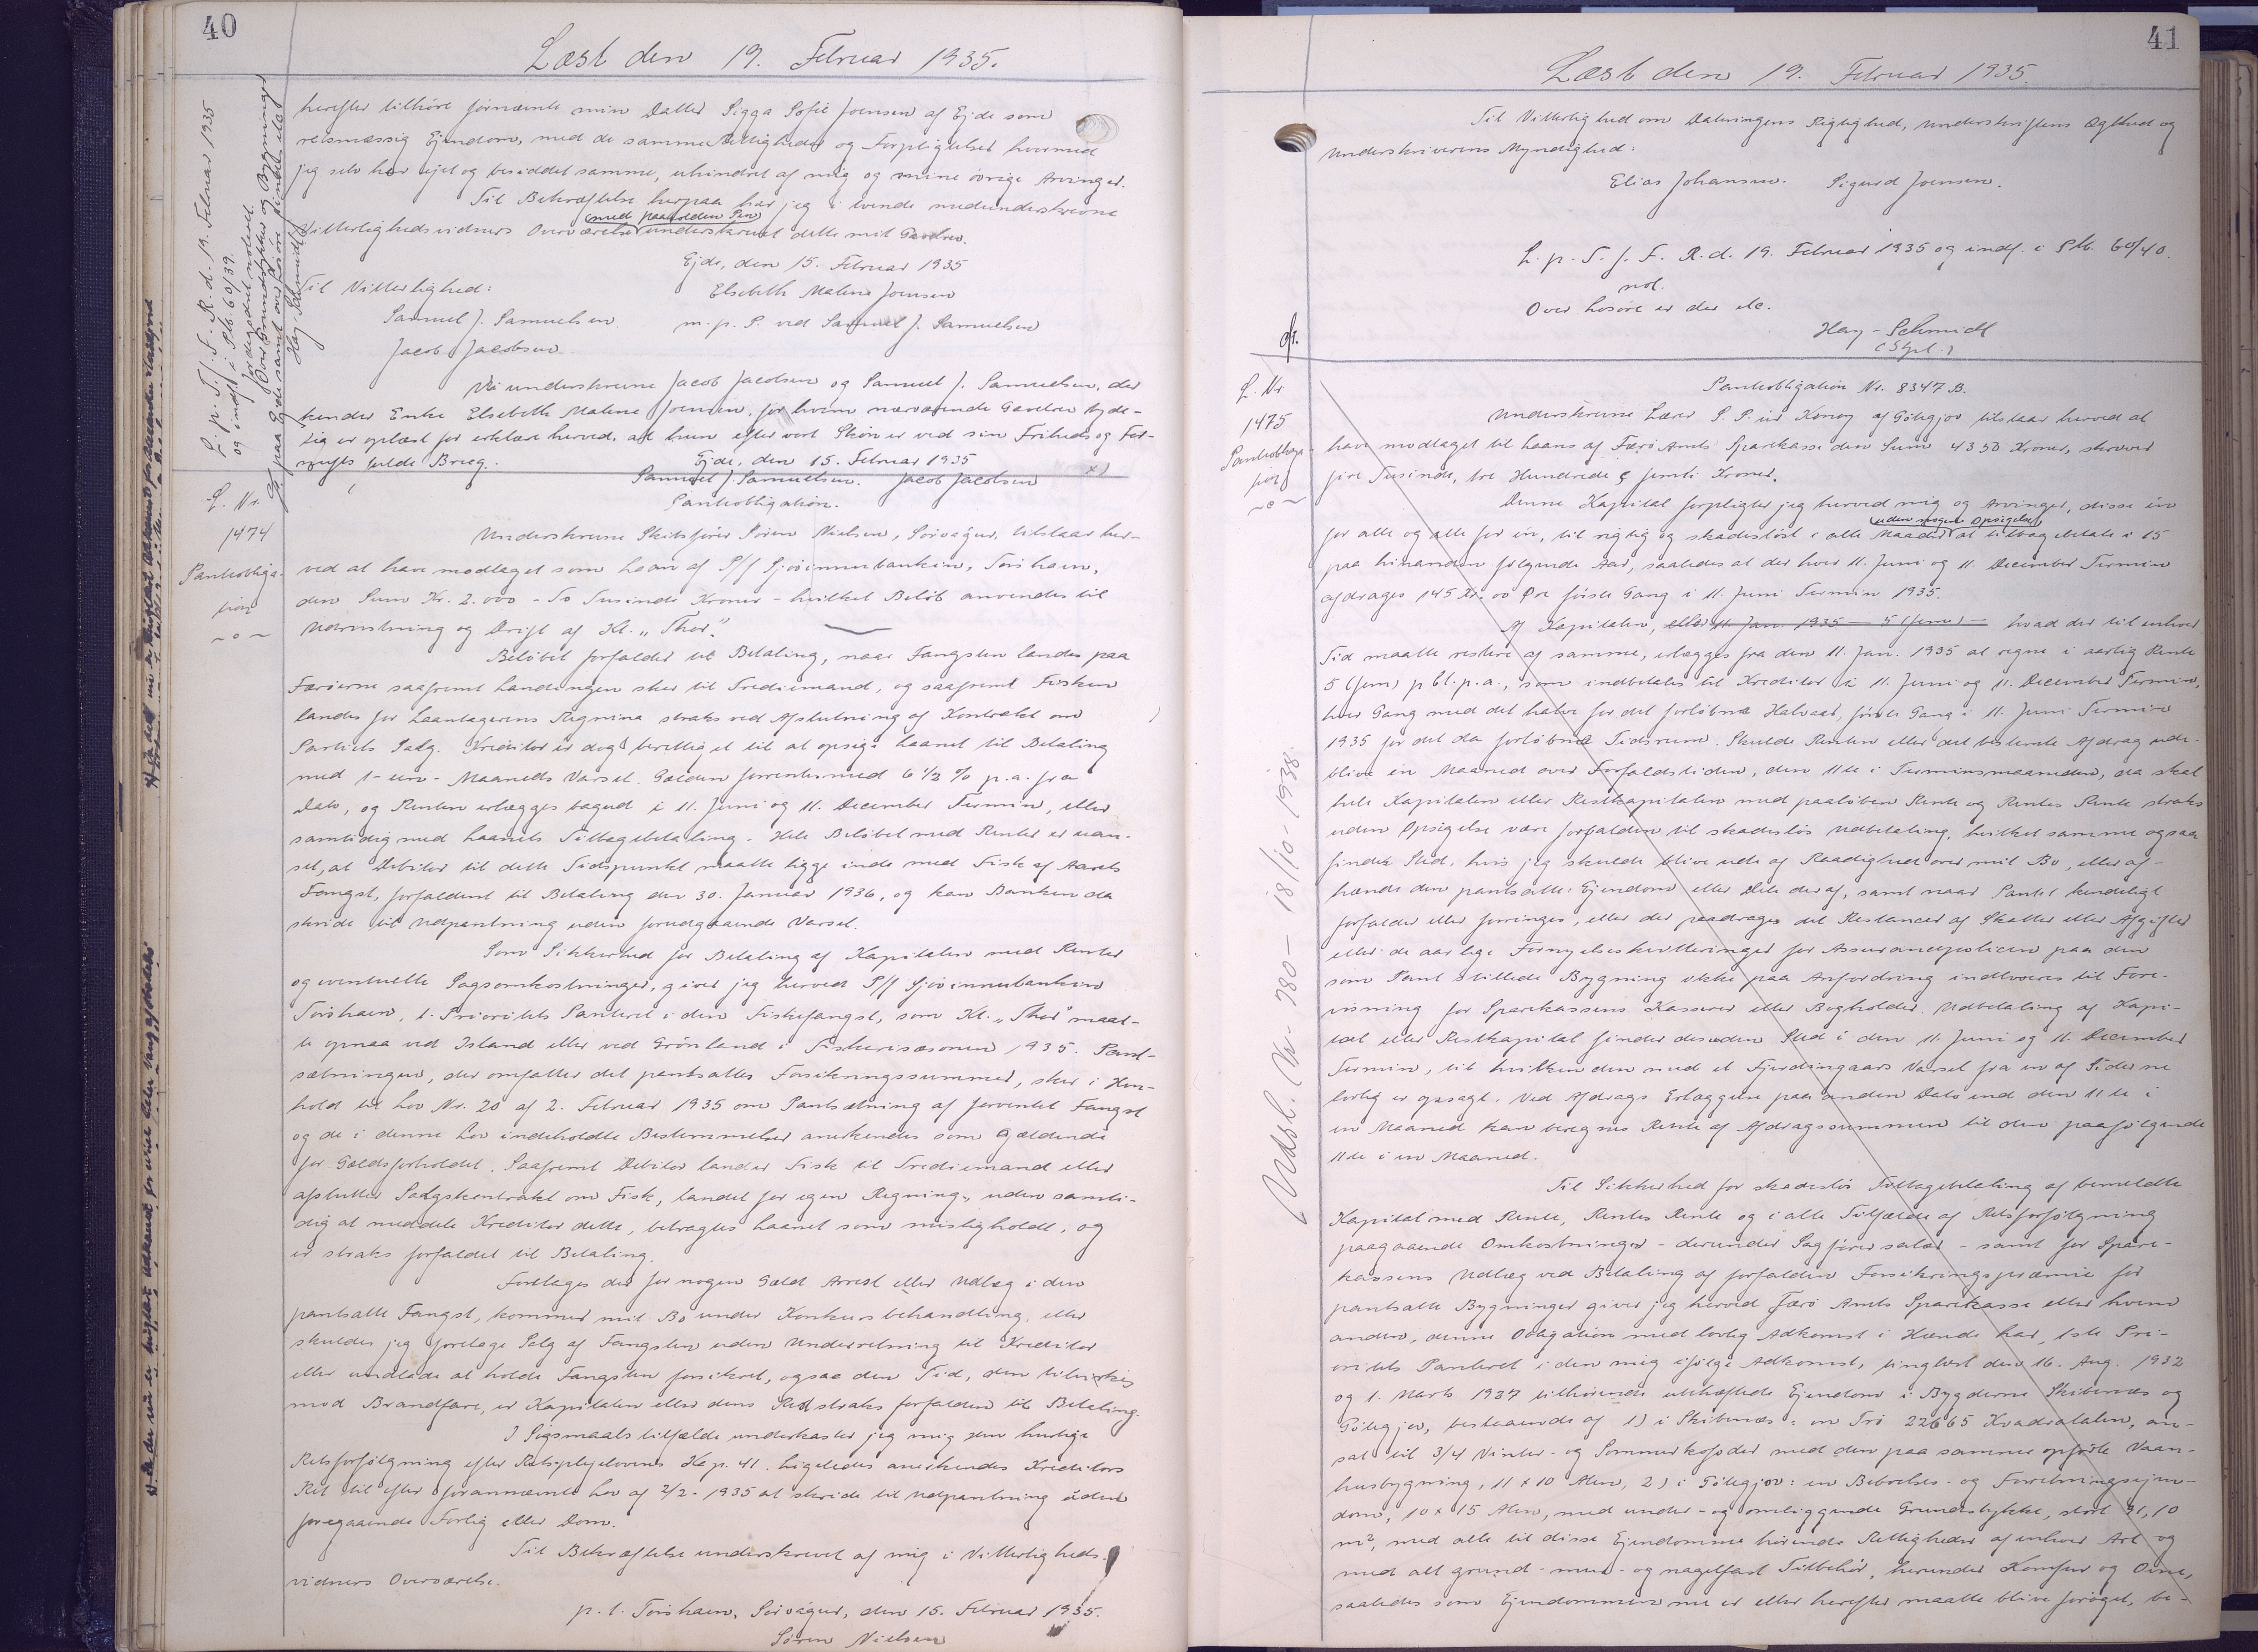 40
Læst den 19. Februar 1935.
herefter tilhöre fornævnte min Datter Sigga Sofie Joensen af Ejde som
retsmæssig Ejendom, med de samme Rettigheder og Forpligtelser hvormed
jeg selv har ejet og besiddet samme, uhindret af mig og mine övrige Arvinger.
Til Bekræftelse herpaa har jeg i tvende medunderskrevne
(med paaholden Pen)
Vitterlighedsvidners Overværelse underskrevet dette mit Gavebrev.
Ejde, den 15. Februar 1935
Til Vitterlighed:
Elsebeth Malene Joensen
Samuel J. Samuelsen.
m. p. P. ved Samuel J. Samuelsen
Jacob Jacobsen
L. p. T. f. F. R. d. 19. Februar 1935
og indf. i Pb. 60/39.
Over Grundstykker og Bygninger
paa Ejde samt over Lösöre findes etc.
Hay-Schmidt
Vi underskrevne Jacob Jacobsen og Samuel J. Samuelsen, der
kender Enke Elsebeth Malene Joensen, for hvem nærværende Gavebrev tyde-
lig er oplæst for erklære herved, at hun efter vort Skön er ved sin Friheds og For-
nufts fulde Brug.
Ejde, den 15. Februar 1935
Samuel J. Samuelsen. Jacob Jacobsen
x)
L. Nr.
1474
Pantobliga-
tion
~o~
Pantobligation.
Underskrevne Skibsförer Sören Nielsen, Sörvágur, tilstaar her-
ved at have modtaget som Laan af P/f Sjóvinnubankin, Torshavn,
den Sum Kr. 2.000 - To Tusinde Kroner - hvilket Belöb anvendes til
Udrustning og Drift af Kt. "Thor".
Belöbet forfalder til Betaling, naar Fangsten landes paa
Færöerne saafremt Landingen sker til Trediemand, og saafremt Fisken
landes for Laantagerens Regning straks ved Afslutning af Kontrakt om
Partiets Salg. Kreditor er dog berettiget til at opsige Laanet til Betaling
med 1 - een - Maaneds Varsel. Gælden forrentes med 6 1/2 % p. a. fra
Dato, og Renten erlægges bagud i 11. Juni og 11. December Termin, eller
samtidig med Laanets Tilbagebetaling. Hele Belöbet med Renter er uan-
set, at Debitor til dette Tidspunkt maatte ligge inde med Fisk af Aarets
Fangst, forfaldent til Betaling den 30. Januar 1936, og kan Banken da
skride til Udpantning uden forudgaaende Varsel.
Som Sikkerhed for Betaling af Kapitalen med Renter
og eventuelle Sagsomkostninger, giver jeg herved P/f Sjóvinnubankin
Torshavn, 1. Prioritets Panteret i den Fiskefangst, som Kt. "Thor" maat-
te opnaa ved Island eller ved Grönland i Fiskerisæsonen 1935. Pant-
sætningen, der omfatter det pantsattes Forsikringssummer, sker i Hen-
hold til Lov Nr. 20 af 2. Februar 1935 om Pantsætning af forventet Fangst
og de i denne Lov indeholdte Bestemmelser anerkendes som gældende
for Gældsforholdet. Saafremt Debitor lander Fisk til Trediemand eller
afslutter Salgskontrakt om Fisk, landet for egen Regning, uden samti-
dig at meddele Kreditor dette, betragtes Laanet som misligholdt, og
er straks forfaldet til Betaling.
Foretages der for nogen Gæld Arrest eller Udlæg i den
pantsatte Fangst, kommer mit Bo under Konkursbehandling, eller
skulde jeg foretage Salg af Fangsten uden Underretning til Kreditor
eller undlade at holde Fangsten forsikret, ogsaa den Tid, den tilvirkes
mod Brandfare, er Kapitalen eller dens Rest straks forfalden til Betaling.
I Sögsmaalstilfælde underkaster jeg mig den hurtige
Retsforfölgning efter Retsplejelovens Kap. 41. Ligeledes anerkendes Kreditors
Ret til efter forannævnte Lov af 2/2-1935 at skride til Udpantning uden
foregaaende Forlig eller Dom.
Til Bekræftelse underskrevet af mig i Vitterligheds-
vidners Overværelse.
p. t. Torshavn, Sörvágur, den 15. Februar 1935.
Sören Nielsen
41
Læst den 19. Februar 1935.
Til Vitterlighed om Dateringens Rigtighed, Underskriftens Ægthed og
Underskriverens Myndighed:
Elias Johansen. Sigurd Joensen.
L. p. T. f. F. R. d. 19. Februar 1935 og indf. i Pb. 60/40.
not.
Over lösöre er der etc.
Hay-Schmidt
L. Nr.
1475
Pantobliga-
tion
~o~
Udsl. Nr. 780 - 18/10-1938.
Pantobligation Nr. 8347 B.
Underskrevne Lærer P. P. úr Konoy af Götugjov tilstaar herved at
have modtaget til Laans af Færö Amts Sparekasse den Sum 4350 Kroner, skriver
fire Tusinde, tre Hundrede & femti Kroner.
Denne Kapital forpligter jeg herved mig og Arvinger, disse én
(uden nogen Opsigelse)
for alle og alle for én, til rigtig og skadeslöst i alle Maader at tilbagebetale i 15
paa hinanden fölgende Aar, saaledes at der hver 11. Juni og 11. December Termin
afdrages 145 Kr. 00 Öre förste Gang i 11. Juni Termin 1935.
Af Kapitalen, eller 11 Jan 1935 - 5 (fem) - hvad der til enhver
Tid maatte restere af samme, erlægges fra den 11. Jan. 1935 at regne i aarlig Rente
5 (fem) p Ct. p. a., som indbetales til Kreditor i 11. Juni og 11. December Termin,
hver Gang med det halve for det forlöbne Halvaar, förste Gang i 11. Juni Termin
1935 for det da forlöbne Tidsrum. Skulde Renten eller det bestemte Afdrag ude-
blive én Maaned over Forfaldstiden, den 11te i Terminsmaaneden, da skal
hele Kapitalen eller Restkapitalen med paalöben Rente og Rentes Rente straks
uden Opsigelse være forfalden til skadeslös Udbetaling, hvilket samme ogsaa
finder Sted, hvis jeg skulde blive ude af Raadighed over mit Bo, eller af-
hænde den pantsatte Ejendom eller Dele deraf, samt naar Pantet kendeligt
forfalder eller forringes, eller der paadrages det Restancer af Skatter eller Afgifter
eller de aarlige Fornyelseskvitteringer for Assurancepolicen paa den
som Pant stillede Bygning ikke paa Anfordring indleveres til Fore-
visning for Sparekassens Kasserer eller Bogholder. Udbetaling af Kapi-
tal eller Restkapital finder desuden Sted i den 11. Juni og 11. December
Termin, til hvilken den med et Fjerdingaars Varsel fra en af Siderne
lovlig er opsagt. Ved Afdrags Erlæggelse paa anden Dato end den 11te i
en Maaned kan beregnes Rente af Afdragssummen til den paafölgende
11te i en Maaned.
Til Sikkerhed for skadeslös Tilbagebetaling af bemeldte
Kapital med Rente, Rentes Rente og i alle Tilfælde af Retsforfölgning
paagaaende Omkostninger - derunder Sagförersalær - samt for Spare-
kassens Udlæg ved Betaling af forfalden Forsikringspræmie for
pantsatte Bygninger giver jeg herved Færö Amts Sparekasse eller hvem
anden, denne Obligation med lovlig Adkomst i Hænde har, 1ste Pri-
oritets Panteret i den mig ifölge Adkomst, tinglæst den 16. Aug. 1932
og 1. Marts 1937 tilhörende ubehæftede Ejendom i Bygderne Skibenæs og
Götugjov, bestaaende af 1) i Skibenæs: en Trö 22665 Kvadratalen, an-
sat til 3/4 Vinter- og Sommerkofoder med den paa samme opförte Vaan-
husbygning, 11 x 10 Alen, 2) i Götugjov: en Beboelses- og Forretningsejen-
dom, 10 x 15 Alen, med under- og omliggende Grundstykke, stort 31,10
m², med alle til disse Ejendomme hörende Rettigheder af enhver Art og
med alt grund- mur- og nagelfast Tilbehör, herunder Komfur og Ovne,
saaledes som Ejendommen nu er eller herefter maatte blive foröget, be-